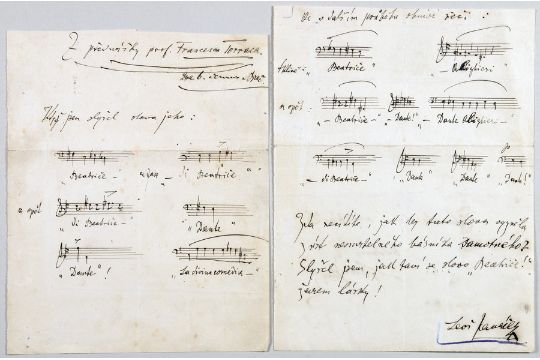 Z přednášky prof. Francesca Torraca
dne 6. červn
Když jsem slyšel slova jako:
„Beatrice“ – di Beatrice“
a opět „di Beatrice – “ „Dante“
„Dante“! „La divina comedia – “
v dalším průběhu ohnivé řeči:
„Beatrice“ „– Alighieri“
a opět: „– Beatrice – “ „Dante!“ „– Dante Alighieri – “
„– di Beatrice“ „Dante“ „Dante“ „Dante!“
Zda necítíte, jak by tato slova vypučila
z úst nesmrtelného básníka samotného?
Slyšel jsem, jak taví se slovo „Beatrice“
žárem lásky!
Leoš Janáček